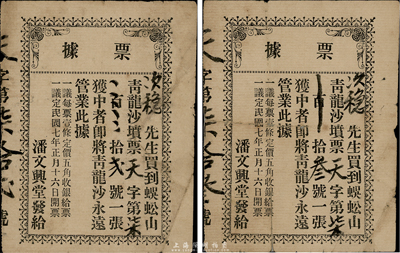 據票
次穏先生買到蜈蚣山
青龍沙墳票天字第柒
百拾弐號一張
獲中者即將青龍沙永遠
管業此據
一議每票壹條定價五角收銀給票
一議定民國七年正月十六日開票
潘文興堂發給
據票
先生買到蜈蚣山
青龍沙墳票天字第柒
百拾叁號一張
獲中者即將青龍沙永遠
管業此據
一議每票壹條定價五角收銀給票
一議定民國七年正月十六日開票
潘文興堂發給